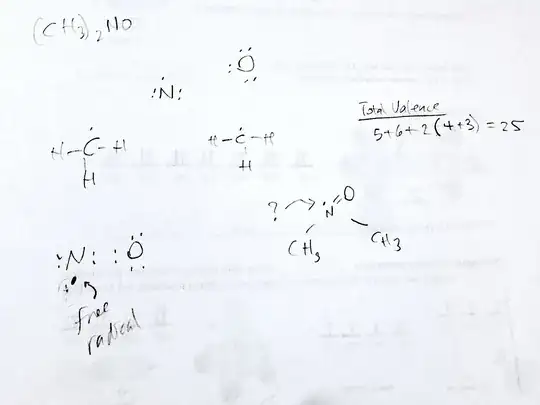 (CH₃)₂NO
:Ö:
:Ṅ:
Total Valence
5+6+2(4+3) = 25
H-Ċ-H
H
H-Ċ-H
H
? → N=O
CH₃
CH₃
:N: :Ö:
free
radical